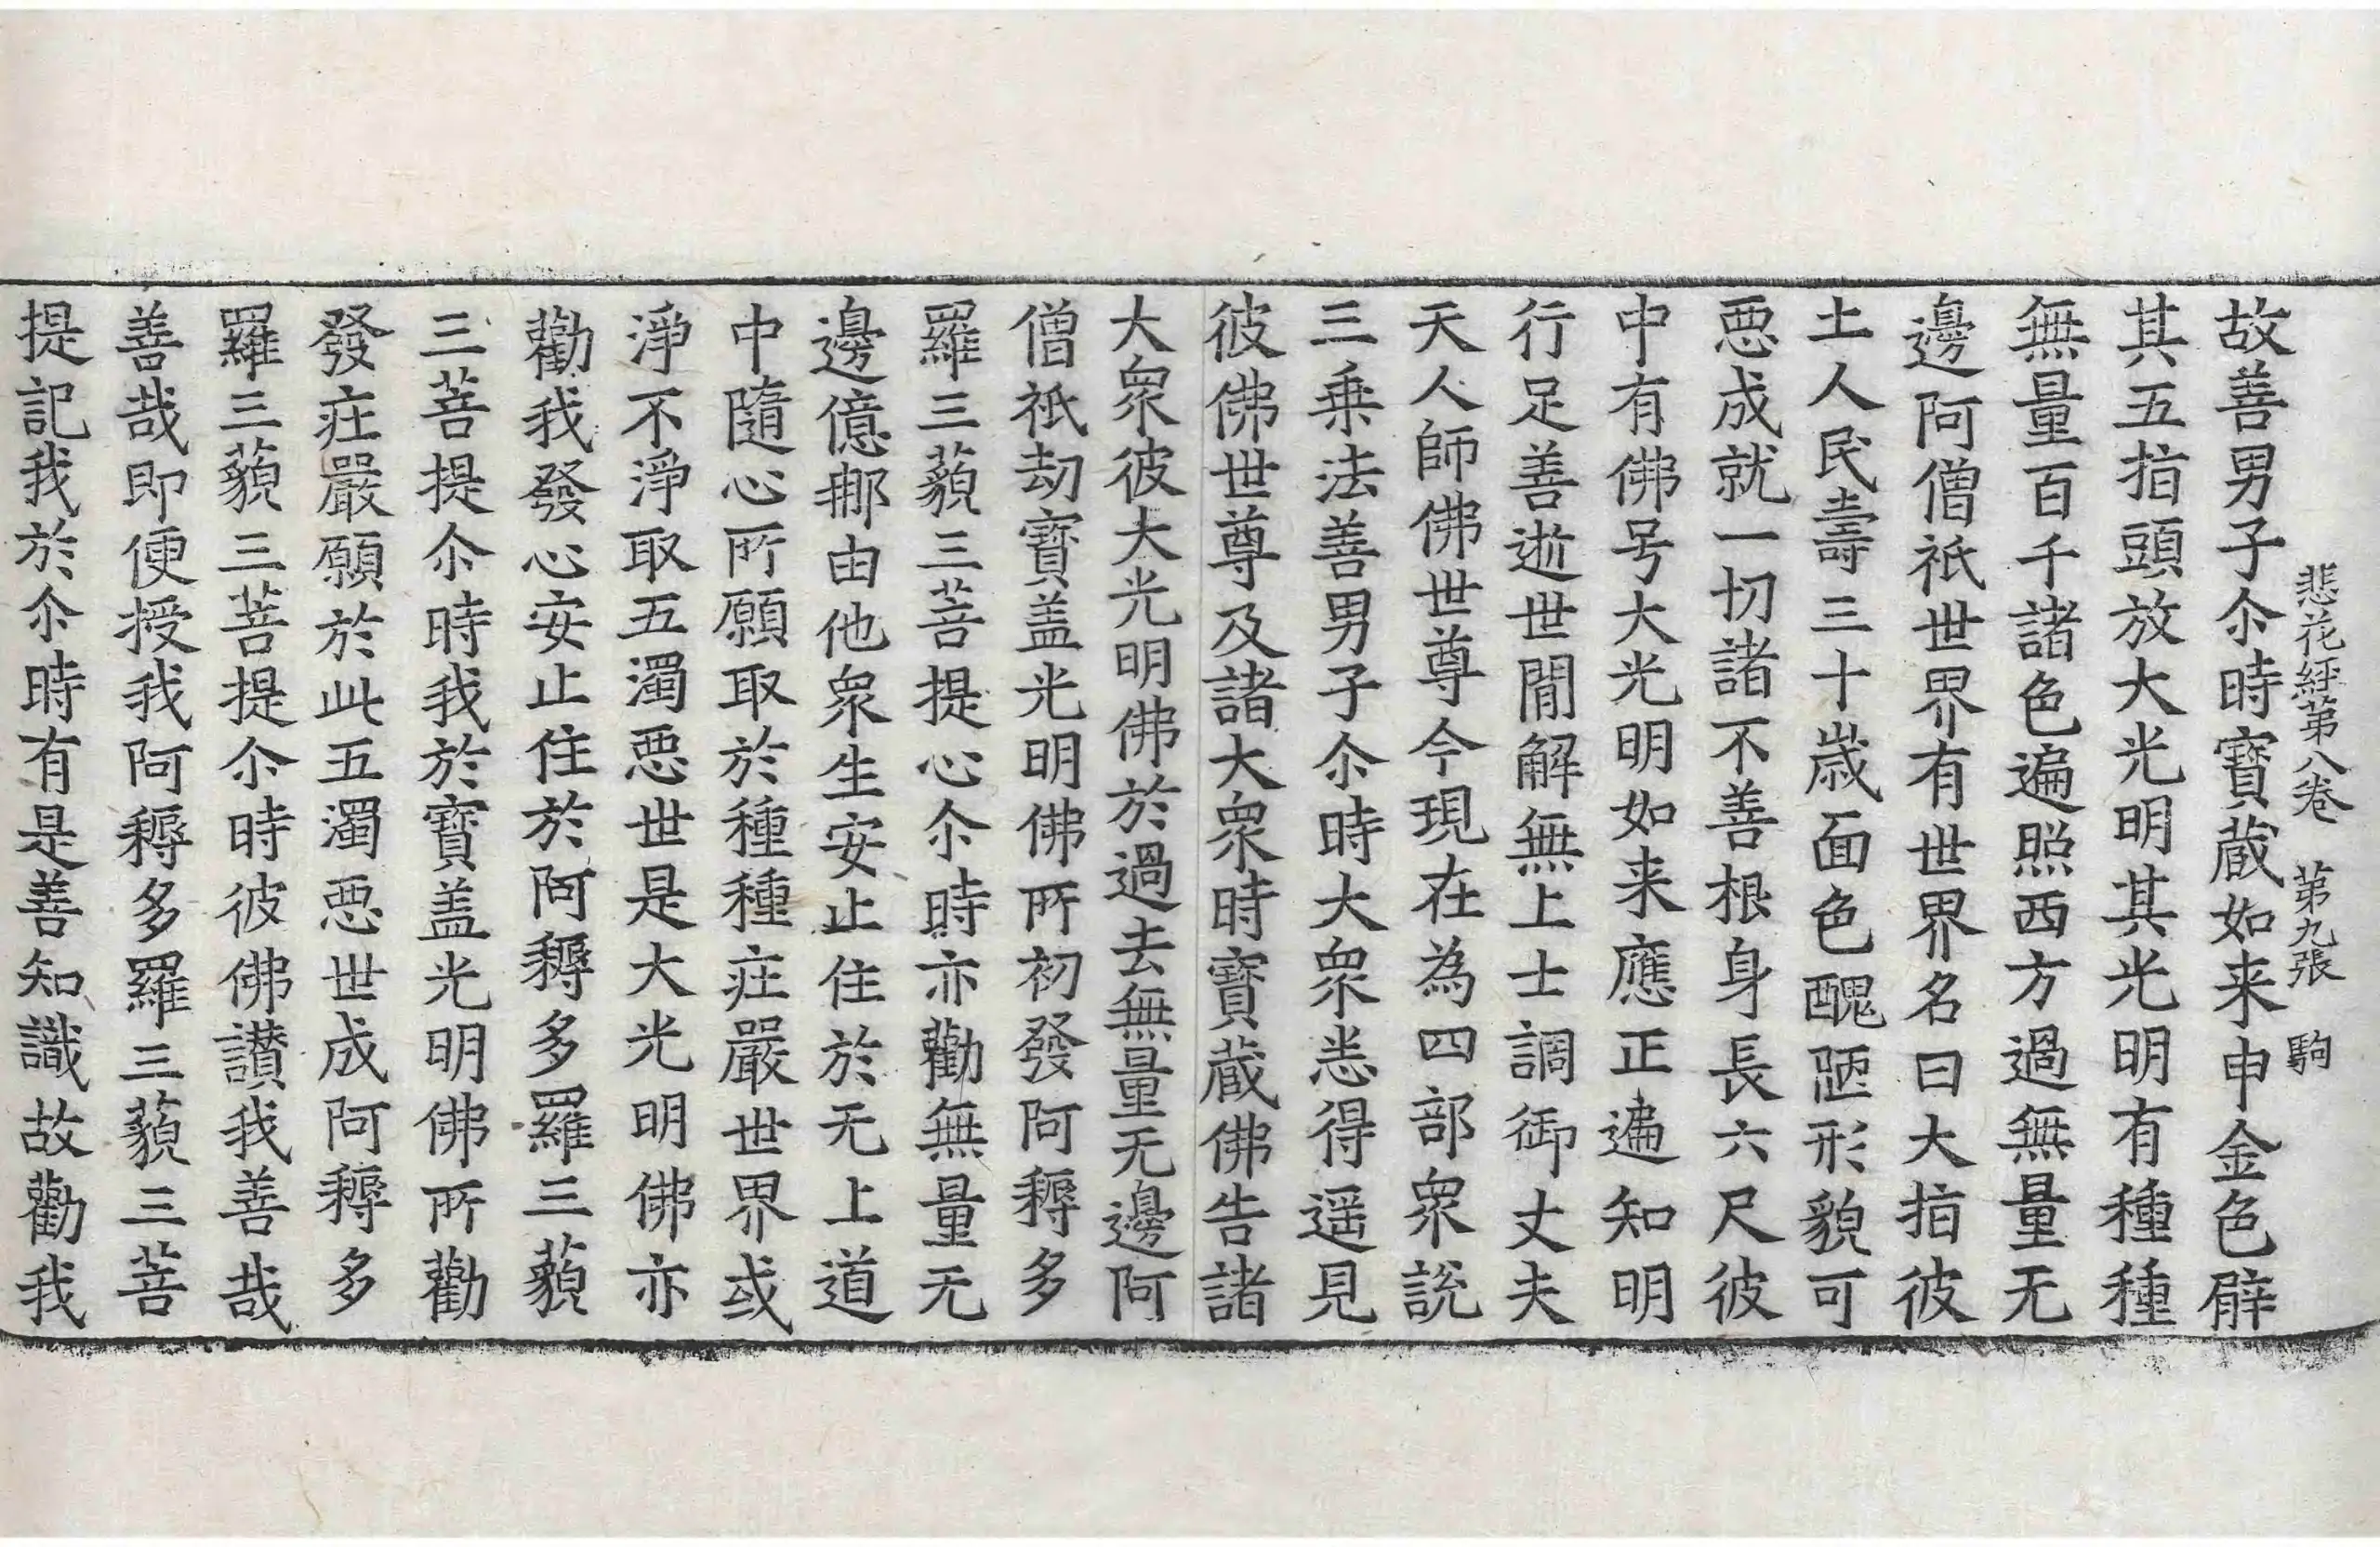 悲花經第八卷 第九張 駒
故善男子尒時寶蔵如来申金色臂
其五指頭放大光明其光明有種種
無量百千諸色遍照西方過無量无
邊阿僧祇世界有世界名曰大指彼
土人民壽三十歳面色醜陋形貌可
惡成就一切諸不善根身長六尺彼
中有佛号大光明如来應正遍知明
行足善逝世間解無上士調御丈夫
天人師佛世尊今現在為四部衆説
三乗法善男子尒時大衆悉得遥見
彼佛世尊及諸大衆時寶蔵佛告諸
大衆彼大光明佛於過去無量无邊阿
僧祇劫寶盖光明佛所初發阿耨多
羅三藐三菩提心尒時亦勸無量无
邊億那由他衆生安止住於无上道
中隨心所願取於種種莊嚴世界或
淨不淨取五濁惡世是大光明佛亦
勸我發心安止住於阿耨多羅三藐
三菩提尒時我於寶盖光明佛所勸
發莊嚴願於此五濁惡世成阿耨多
羅三藐三菩提尒時彼佛讃我善哉
善哉即便授我阿耨多羅三藐三菩
提記我於尒時有是善知識故勸我